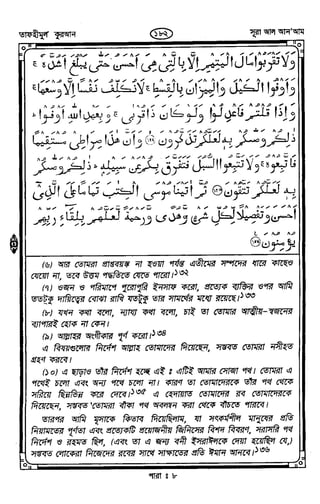 তাফহীমুল কুরআন
১৮২
সূরা আল আন'আম
وَلَا تَقْرَبُوا مَالَ الْيَتِيمِ إِلَّا بِالَّتِي هِيَ أَحْسَنُ حَتَّى يَبْلُغَ أَشُدَّهُ ۚ
وَأَوْفُوا الْكَيْلَ وَالْمِيزَانَ بِالْقِسْطِ ۚ لَا نُكَلِّفُ نَفْسًا إِلَّا وُسْعَهَا ۚ
وَإِذَا قُلْتُمْ فَاعْدِلُوا وَلَوْ كَانَ ذَا قُرْبَىٰ ۚ وَبِعَهْدِ اللَّهِ أَوْفُوا ۚ
ذَٰلِكُمْ وَصَّاكُمْ بِهِ لَعَلَّكُمْ تَذَكَّرُونَ ۝ وَأَنَّ هَٰذَا صِرَاطِي مُسْتَقِيمًا
فَاتَّبِعُوهُ ۚ وَلَا تَتَّبِعُوا السُّبُلَ فَتَفَرَّقَ بِكُمْ عَنْ سَبِيلِهِ ۚ ذَٰلِكُمْ وَصَّاكُمْ
بِهِ لَعَلَّكُمْ تَتَّقُونَ ۝ ثُمَّ آتَيْنَا مُوسَى الْكِتَابَ تَمَامًا عَلَى الَّذِي
أَحْسَنَ وَتَفْصِيلًا لِكُلِّ شَيْءٍ وَهُدًى وَرَحْمَةً لَعَلَّهُمْ بِلِقَاءِ رَبِّهِمْ
يُؤْمِنُونَ ۝
(৬) আর তোমরা প্রাপ্তবয়স্ক না হওয়া পর্যন্ত এতীমের সম্পদের ধারে কাছেও
যেয়ো না, তবে উত্তম পদ্ধতিতে যেতে পারো।১৩২
(৭) ওজন ও পরিমাপে পুরোপুরি ইনসাফ করো, প্রত্যেক ব্যক্তির ওপর আমি
ততটুকু দায়িত্বের বোঝা রাখি যতটুকু তার সামর্থের মধ্যে রয়েছে।১৩৩
(৮) যখন কথা বলো, ন্যায্য কথা বলো, চাই তা তোমার আত্মীয়-স্বজনের
ব্যাপারই হোক না কেন।
(৯) আল্লাহর অংগীকার পূর্ণ করো।১৩৪
এ বিষয়গুলোর নির্দেশ আল্লাহ তোমাদের দিয়েছেন, সম্ভবত তোমরা নসীহত
গ্রহণ করবে।
(১০) এ ছাড়াও তাঁর নির্দেশ হচ্ছে এই ঃ এটিই আমার সোজা পথ। তোমরা এ
পথেই চলো এবং অন্য পথে চলো না। কারণ তা তোমাদেরকে তাঁর পথ থেকে
সরিয়ে ছিন্নভিন্ন করে দেবে।১৩৫ এ হেদায়াত তোমাদের রব তোমাদেরকে
দিয়েছেন, সম্ভবত তোমরা বাঁকা পথ অবলম্বন করা থেকে বাঁচতে পারবে।
তারপর আমি মূসাকে কিতাব দিয়েছিলাম, যা সৎকর্মশীল মানুষের প্রতি
নিয়ামতের পূর্ণতা এবং প্রত্যেকটি প্রয়োজনীয় জিনিসের বিশদ বিবরণ, সরাসরি পথ
নির্দেশ ও রহমত ছিল, (এবং তা এ জন্য বনী ইসরাঈলকে দেয়া হয়েছিল যে,)
সম্ভবত লোকেরা নিজেদের রবের সাথে সাক্ষাতের প্রতি ঈমান আনবে।১৩৬
পারা ঃ ৮